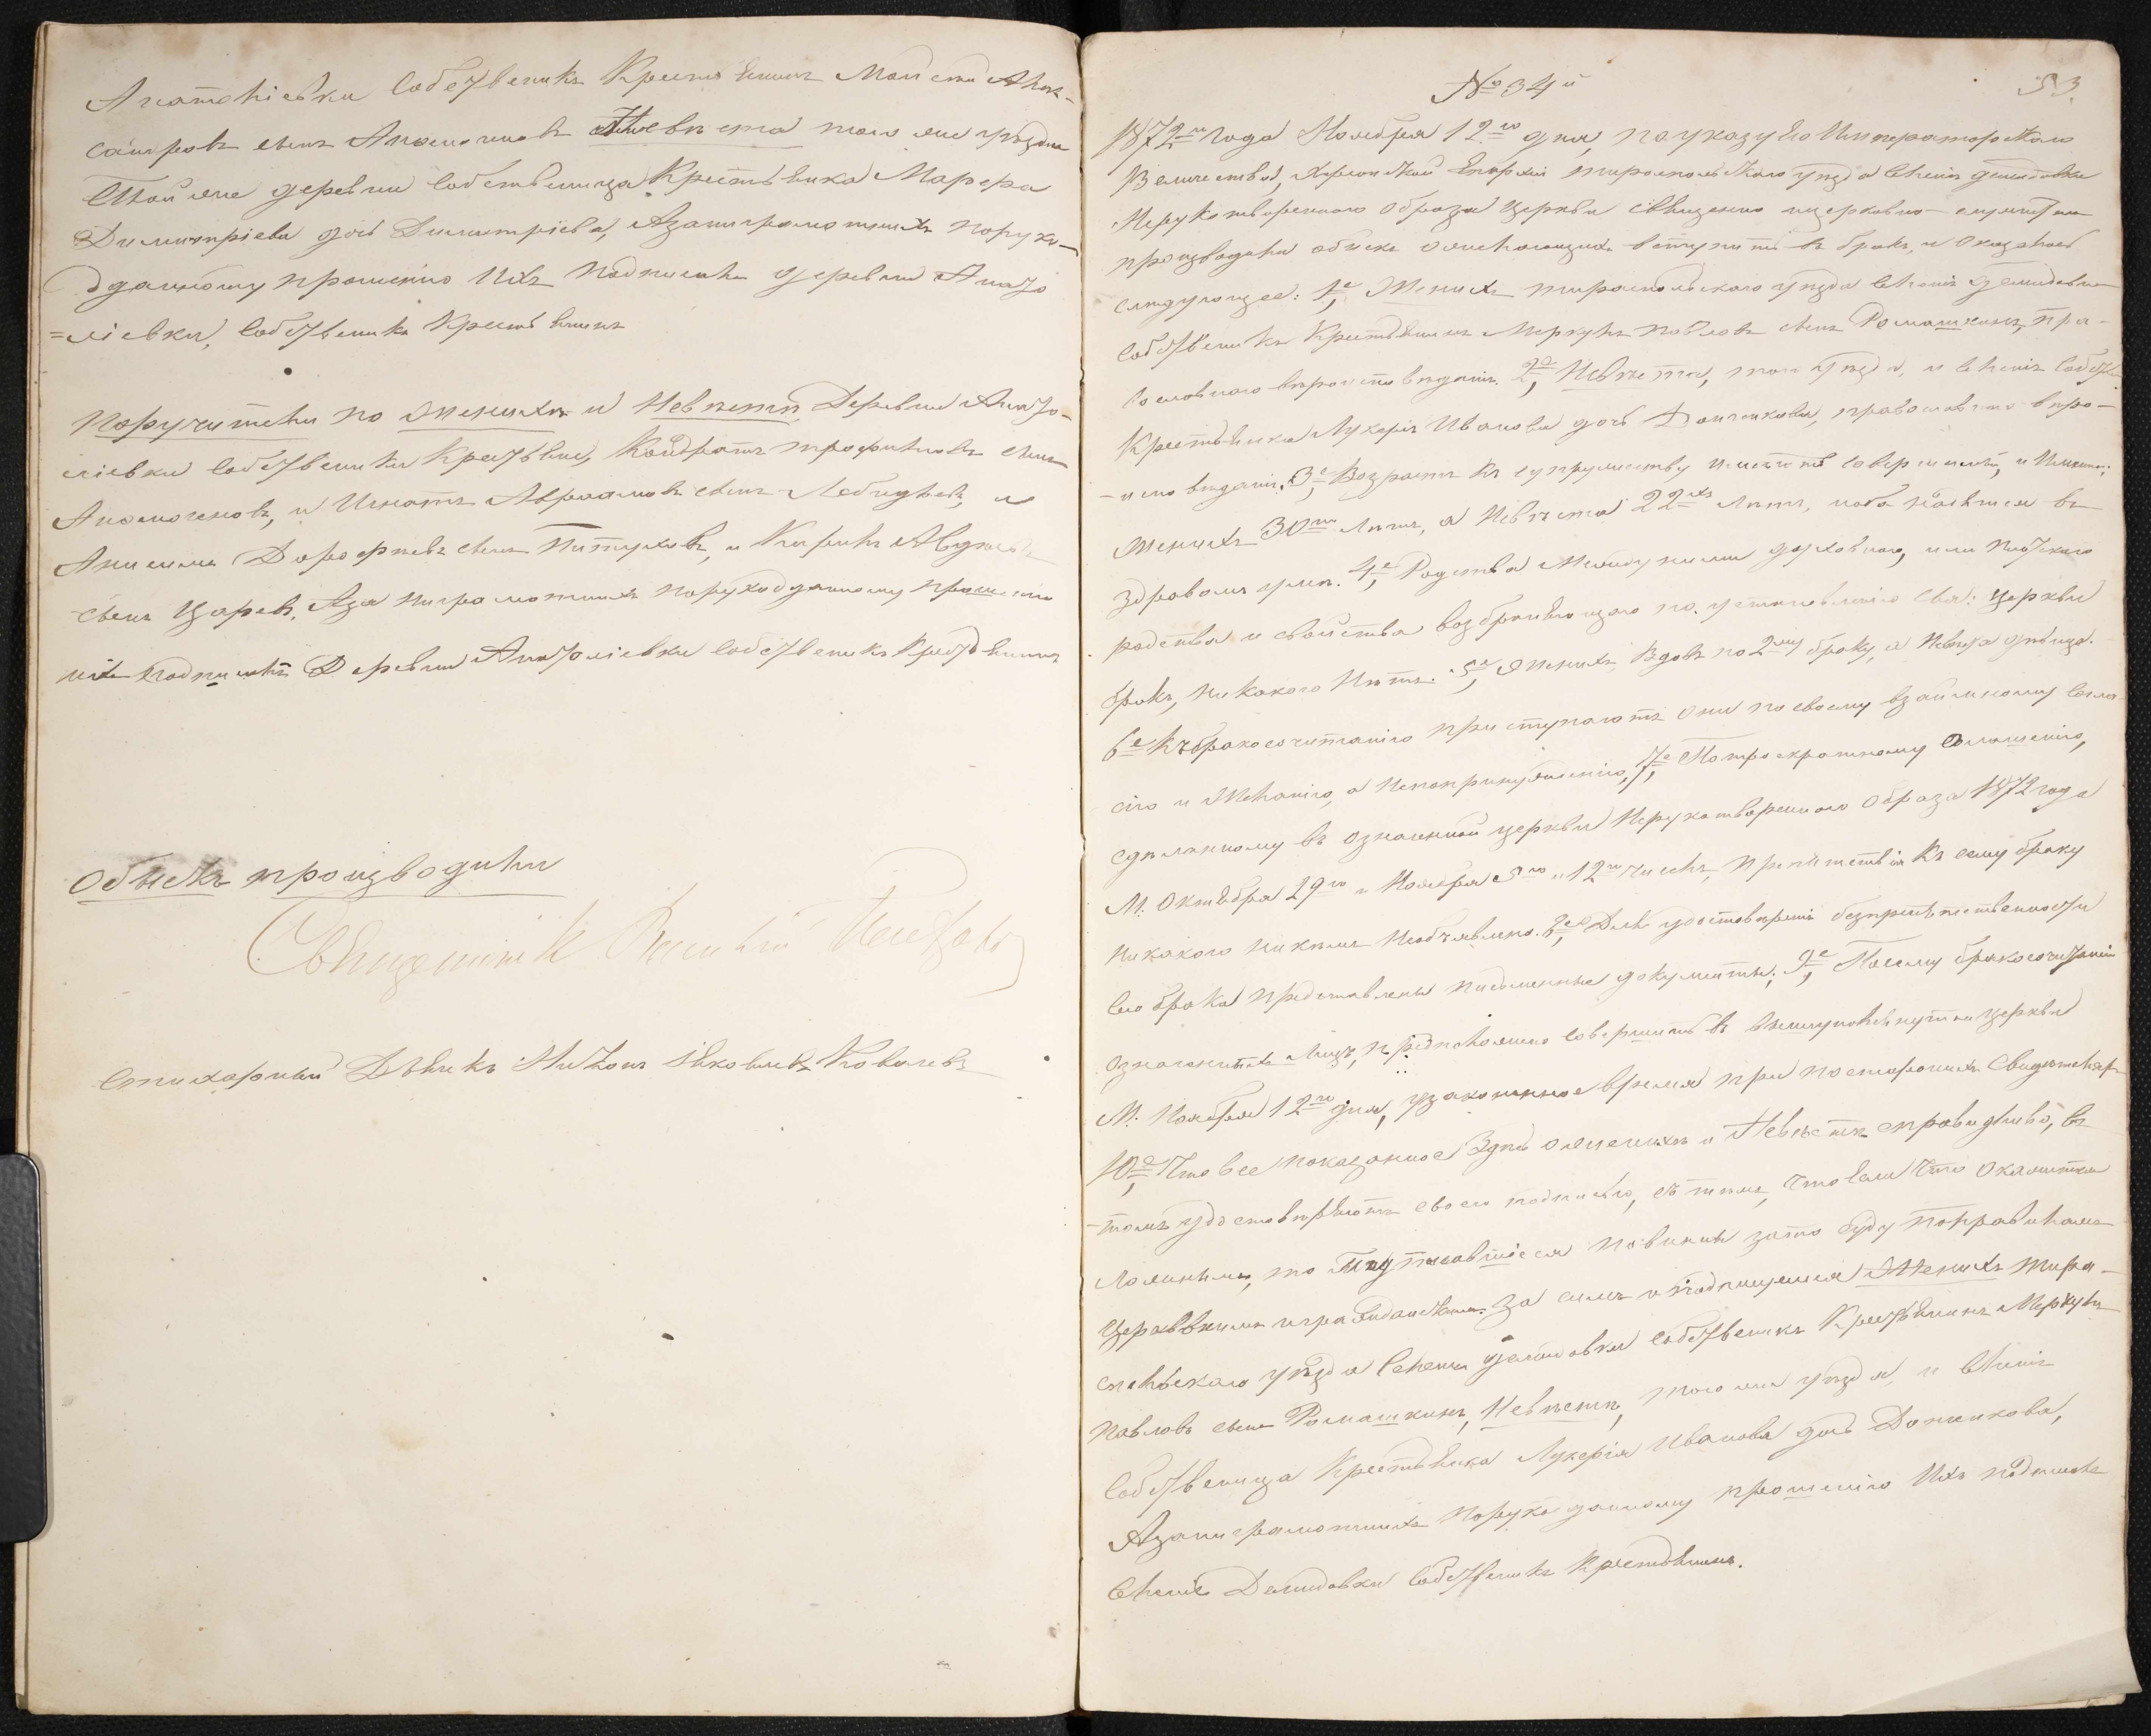 Анатоліевки собственикъ Крестьянинъ Моисей Алек-
сандровъ сынъ Апомоченовъ Невеста того же уезда
Той же деревни собственица Крестьянка Марѳра
Димитріева дочь Димитріева, Азаниграмотныхъ поруко-
дданному прошенію ихъ подписалъ деревни Анато
=ліевки, собственикъ Крестьянинъ
Поручители по женихѣ и Невестѣ Деревни Анато-
ліевки собственики Крестьяне, Кондратъ трофимовъ сынъ
Апомоченовъ, и Игнатъ Авраамовъ сынъ Лебидевъ, и
Анисимъ Дорофеевъ сынъ Питуховъ, и Кирилъ
сынъ Царевъ, Аза ниграмотныхъ порукодданному прошенію
ихъ подписалъ Деревни Анатоліевки собственикъ Крестьянинъ
Обыскъ производили
Священникъ Василій
Стихарный Дьячекъ Яковлевъ Ковалевъ
№ 34й 53.
1872го года Ноября 12го дня, по указу Его Императорскаго
Величества, Херсонской Епархіи тираспольскаго уезда Селенія демидовки
Нерукотвореннаго образа Церкви священно ицерковно-служители
производили обыскъ ожелающихъ вступить въ бракъ, и оказалось
следующее: 1е, Женихъ тираспольскаго уезда Селенія Демидовки
собственикъ Крестьянинъ Меркулъ павловъ сынъ Ромашкинъ, пра-
вославнаго вероисповеданія. 2е, Невеста, того уезда, и селенія собств
Крестьянка Лукерія Иванова дочь Донченкова, православнаго веро-
-исповеданія. 3е Возрастъ къ супружеству имеютъ совершенный, и Именно:
женихъ 30ти летъ, а Невеста 22хъ летъ, иоба находятся въ
здравомъ уме. 4е, Родства Между ними духовнаго, или плотскаго
родства и свойства возбраняющаго по установленію свя: церкви
бракъ, никакого Нетъ. 5е, Женихъ Вдовъ по 2му браку, а Невеста девица.
6е Къ бракосочитанію приступаютъ они по своему взаимному согла-
сію и Желанію, а Непопринужденію, 7е, Потроекратному оглашенію,
сделанному въ означенной церкви Нерукотвореннаго Образа 1872 года
М: Октября 29го и Ноября 5го и 12го чиселъ, препятствія къ сему браку
никакого никемъ Необъявлено. 8е, Для удостоверенія безпрепятственности
сего брака представлены письменные документы; 9е, Посему бракосочитаніе
означенныхъ лицъ, предположено совершить въ вышеупомянутой церкви
М: Ноября 12го дня, узаконенное время при постороннихъ Свидетеляхъ
10е, Что все показанное Здесь ожениихъ и Невесте справедливо, въ
-томъ удостоверяютъ своею подписью, съ темъ, что если Что окажется
ложнымъ, то подписавшіеся повинны зато суду поправиламъ
Церковнымъ играждансткимъ. За симъ и подпишемся Женихъ тира-
спольскаго уезда Селенія Демидовки собственикъ Крестьянинъ Меркулъ
павловъ сынъ Ромашкинъ, Невестѣ, того же уезда и Селенія
собственица Крестьянка Лукерія Иванова дочь Донченкова,
Азаниграмотныхъ порукоданному прошенію Ихъ подписалъ
Селенія Демидовки собственикъ Крестьянинъ.